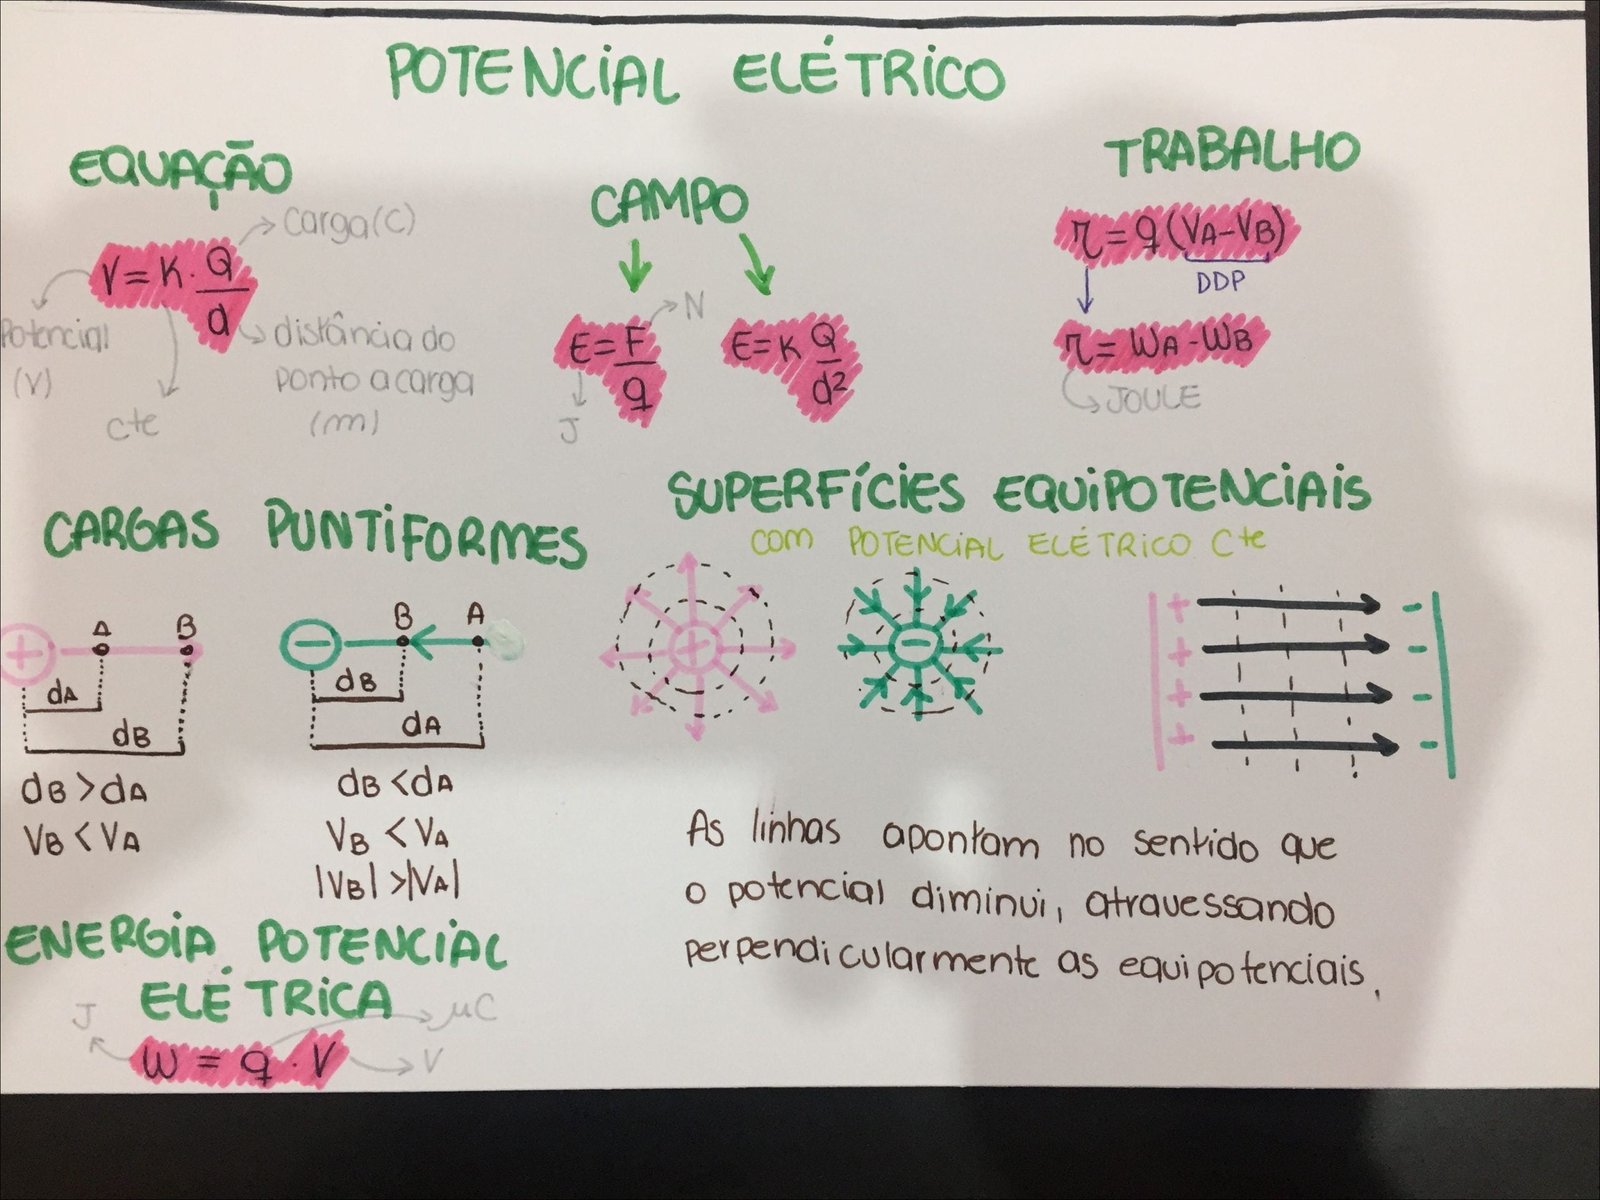 POTENCIAL ELÉTRICO
EQUAÇÃO
Carga (C)
V = K · Q/d
Potencial
(V)
cte
distância do
ponto a carga
(m)
CAMPO
E = F/q
N
J
E = K Q/d²
TRABALHO
τ = q (VA - VB)
DDP
τ = WA - WB
JOULE
CARGAS PUNTIFORMES
+ A B
dA
dB
dB > dA
VB < VA
- B A
dB
dA
dB < dA
VB < VA
|VB| > |VA|
SUPERFÍCIES EQUIPOTENCIAIS
COM POTENCIAL ELÉTRICO Cte
+
-
+ -
+ -
+ -
+ -
As linhas apontam no sentido que
o potencial diminui, atravessando
perpendicularmente as equipotenciais.
ENERGIA POTENCIAL
ELÉTRICA
J
μC
W = q · V
V